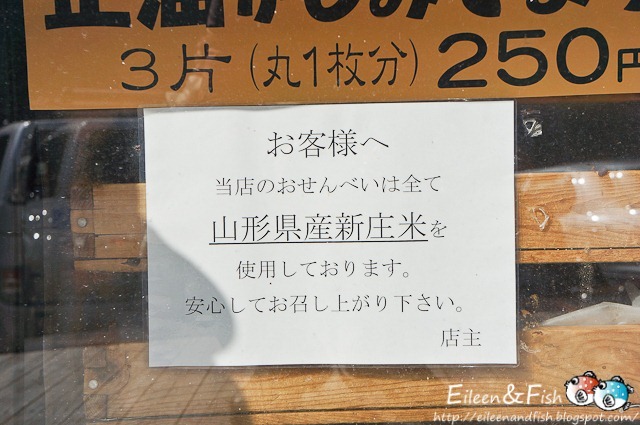 3片(丸1枚分)250円
お客様へ
当店のおせんべいは全て
山形県産新庄米を
使用しております。
安心してお召し上がり下さい。
店主
Eileen&Fish
http://eileenandfish.blogspot.com/